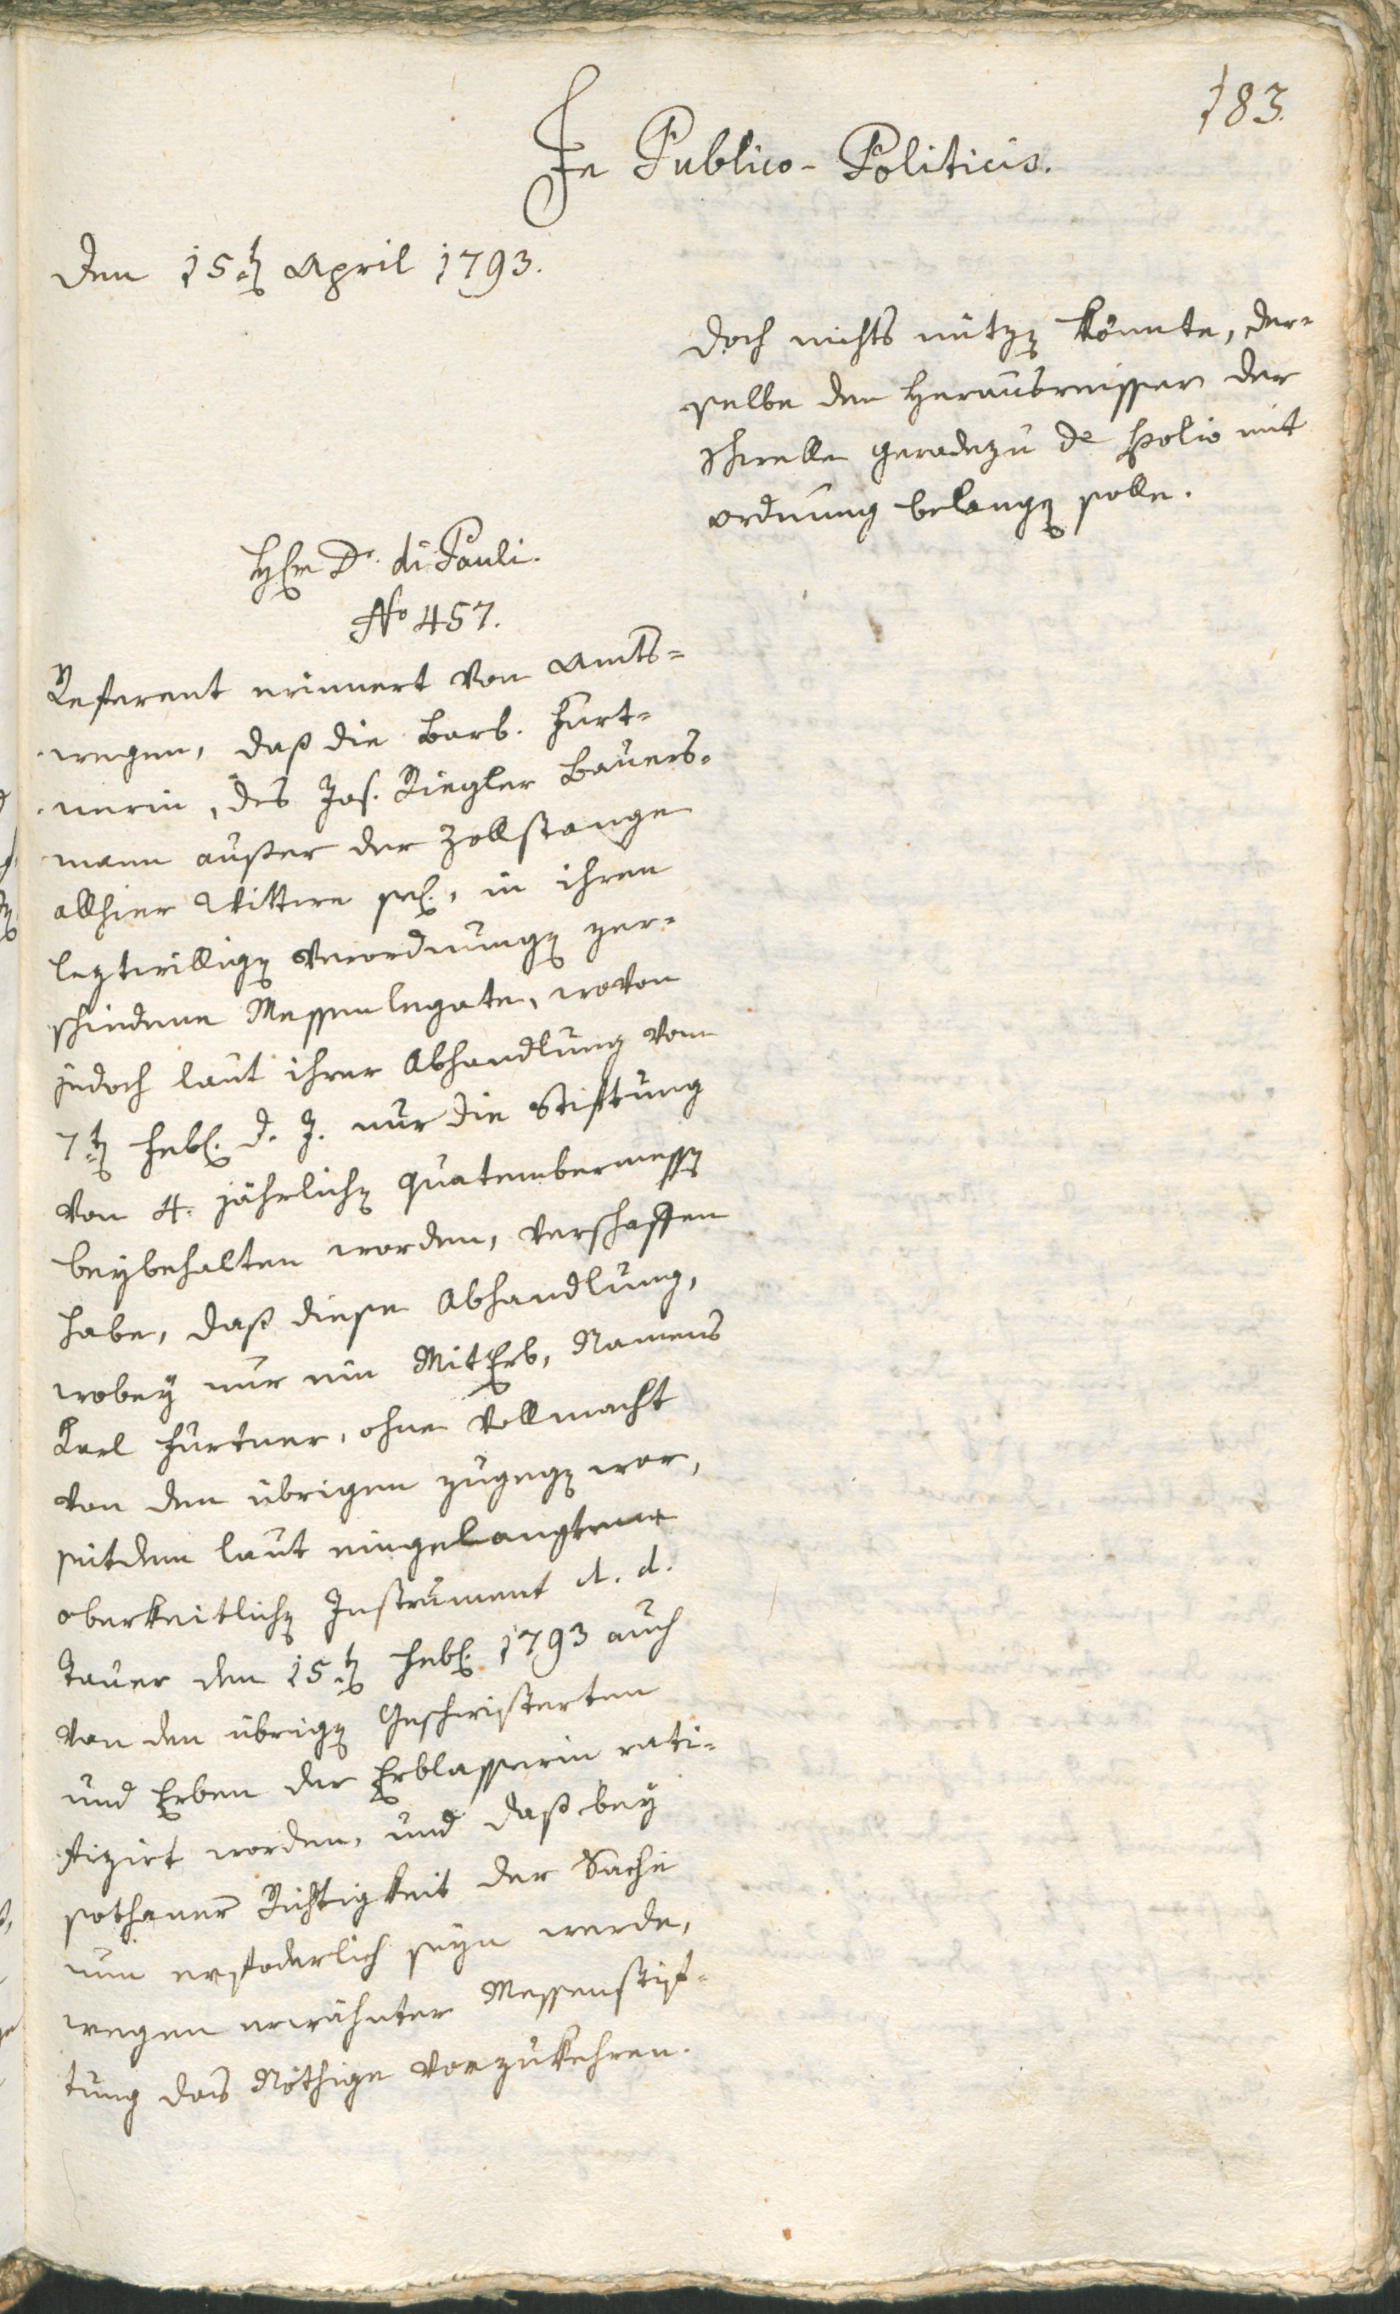 183.
In Publico-Politicis.
Den 15.t[en] April 1793.
doch nichts nützen könnte, der=
selbe den Herausreisser der
Schwelle geradezu de spolio mit
Ordnung belangen solle.
H[err]n Dr. di Pauli.
No 457.
Referent erinnert von Amts=
wegen, daß die Barb. Furt=
nerin, des Jos. Riegler Bauers=
mann ausser der Zollstange
allhier Wittwe sel., in ihren
leztwilligen Verordnungen ver=
schiedene Messenlegate, wovon
jedoch laut ihrer Abhandlung vom
7.ten Feb. d. J. nur die Stiftung
von 4. jährlichen Quatembermessen
beybehalten worden, verschaffen
habe, daß diese Abhandlung,
wobey nur ein MitErb, Namens
Karl Furtner, ohne Vollmacht
von den übrigen zugegen war,
seitdem laut eingelangtem
oberkeitlichen Instrument d. d.
Taufer den 15.ten Feb. 1793 auch
von den übrigen Geschwisterten
und Erben der Erblasserin rati=
fizirt worden, und daß bey
sothaner Richtigkeit der Sache
nun erfoderlich seyn werde,
wegen erwähnter Messenstif=
tung das Nöthige vorzukehren.